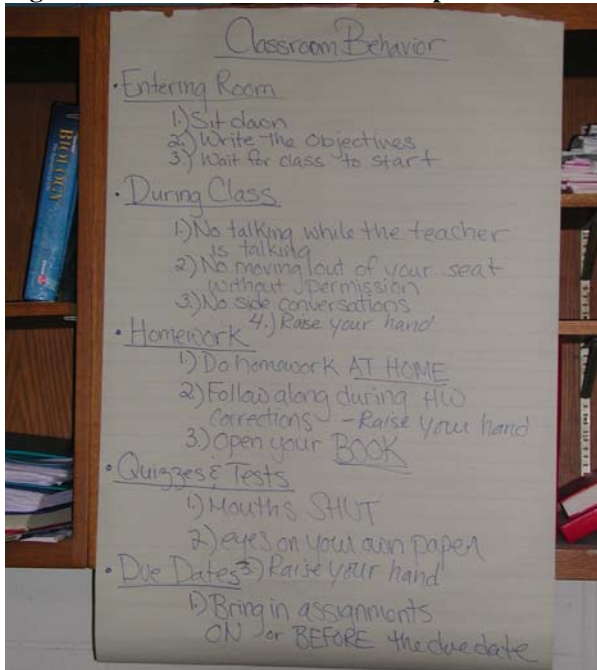 Classroom Behavior
• Entering Room
1.) Sit down
2.) Write the Objectives
3.) Wait for class to start
• During Class
1.) No talking while the teacher
is talking
2.) No moving out of your seat
without permission
3.) No side conversations
4.) Raise your hand
• Homework
1.) Do homework AT HOME
2.) Follow along during HW
corrections - Raise your hand
3.) Open your BOOK
• Quizzes & Tests
1.) Mouths SHUT
2.) eyes on your own paper
3.) Raise your hand
• Due Dates
1.) Bring in assignments
ON or BEFORE the due date
BIOLOGY